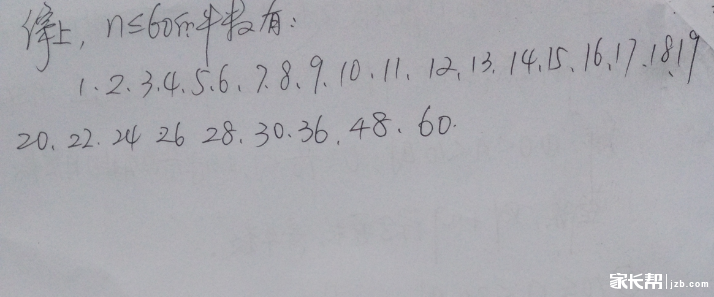 综上, n≤60的半数有:
1、2、3、4、5、6、7、8、9、10、11、12、13、14、15、16、17、18、19
20、22、24 26 28、30、36、48、60.
家长帮 jzb.com